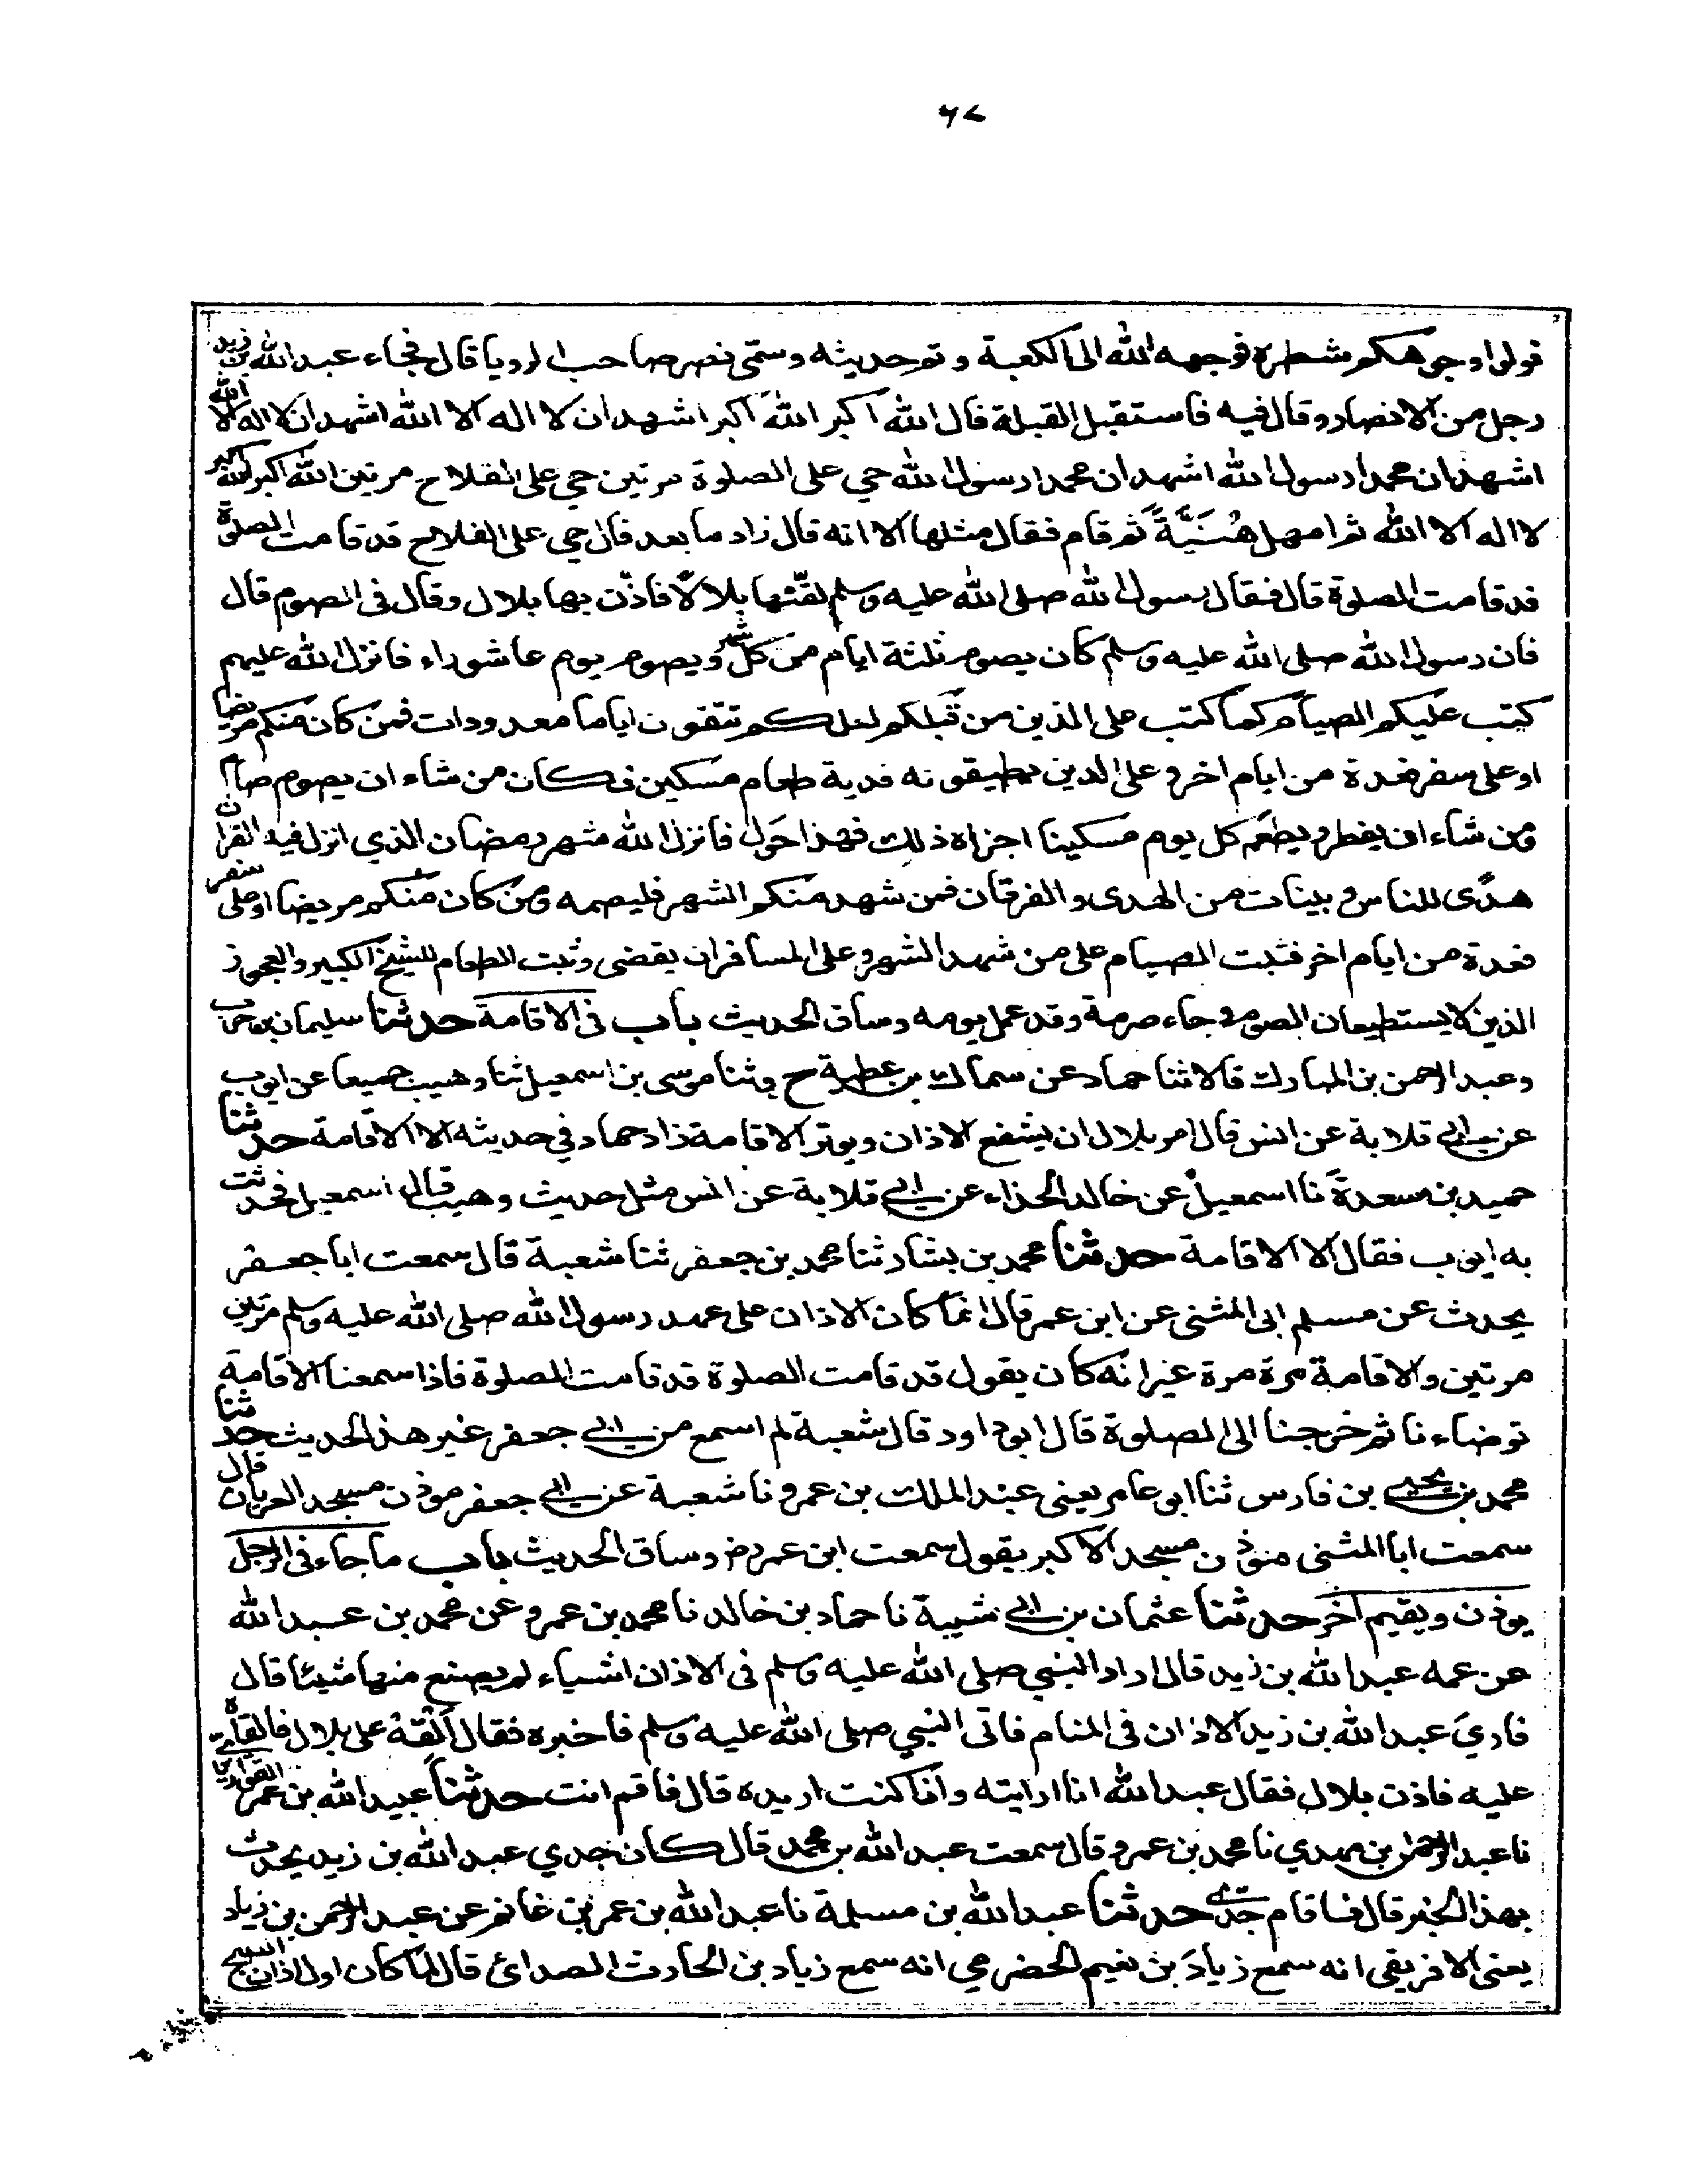 ٦٧
فولوا وجوهكم شطره فوجهه الله الى الكعبة وتم حديثه وسمّى نصر صاحب الرويا قال فجاء عبد الله بن زيد
رجل من الانصار وقال فيه فاستقبل القبلة قال الله اكبر الله اكبر اشهد ان لا اله الا الله اشهد ان لا اله الا الله
اشهد ان محمدا رسول الله اشهد ان محمدا رسول الله حي على الصلوة مرتين حي على الفلاح مرتين الله اكبر الله اكبر
لا اله الا الله ثم امهل هُنَيَّةً ثم قام فقال مثلها الا انه قال زاد ما بعد قال حي على الفلاح قد قامت الصلوة
قد قامت الصلوة قال فقال رسول الله صلى الله عليه وسلم لقّنها بلالًا فاذّن بها بلال وقال فى الصوم قال
فان رسول الله صلى الله عليه وسلم كان يصوم ثلثة ايام من كل شهر ويصوم يوم عاشوراء فانزل الله عليهم
كتب عليكم الصيام كما كتب على الذين من قبلكم لعلكم تتقون اياما معدودات فمن كان منكم مريضا
او على سفر فعدة من ايام اخر وعلى الذين يطيقونه فدية طعام مسكين فكان من شاء ان يصوم صام
ومن شاء ان يفطر ويطعم كل يوم مسكينا اجزاه ذلك فهذا حَول فانزل الله شهر رمضان الذي انزل فيه القران
هدًى للناس وبينات من الهدى والفرقان فمن شهد منكم الشهر فليصمه ومن كان منكم مريضا او على سفر
فعدة من ايام اخر فثبت الصيام على من شهد الشهر وعلى المسافر ان يقضى وثبت الطعام للشيخ الكبير والعجوز
الذين لا يستطيعان الصوم وجاء صرمة وقد عمل يومه وساق الحديث باب فى الاقامة حدثنا سليمان بن حرب
وعبد الرحمن بن المبارك قالا ثنا حماد عن سماك بن عطية ح وثنا موسى بن اسمعيل ثنا وهيب جميعا عن ايوب
عن ابي قلابة عن انس قال امر بلال ان يشفع الاذان ويوتر الاقامة زاد حماد في حديثه الا الاقامة حدثنا
حميد بن مسعدة نا اسمعيل عن خالد الحذاء عن ابي قلابة عن انس مثل حديث وهيب قال اسمعيل فحدثت
به ايوب فقال الا الاقامة حدثنا محمد بن بشار ثنا محمد بن جعفر ثنا شعبة قال سمعت ابا جعفر
يحدث عن مسلم ابى المثنى عن ابن عمر قال انما كان الاذان على عهد رسول الله صلى الله عليه وسلم مرتين
مرتين والاقامة مرة مرة غير انه كان يقول قد قامت الصلوة قد قامت الصلوة فاذا سمعنا الاقامة
توضاء نا ثم خرجنا الى الصلوة قال ابو داود قال شعبة لم اسمع من ابي جعفر غير هذا الحديث حدثنا
محمد بن يحيى بن فارس ثنا ابو عامر يعنى عبد الملك بن عمرو نا شعبة عن ابي جعفر موذن مسجد العريان قال
سمعت ابا المثنى موذن مسجد الاكبر يقول سمعت ابن عمر رض وساق الحديث باب ما جاء فى الرجل
يوذن ويقيم اخر حدثنا عثمان بن ابي شيبة نا حماد بن خالد نا محمد بن عمرو عن محمد بن عبد الله
عن عمه عبد الله بن زيد قال اراد النبي صلى الله عليه وسلم فى الاذان اشياء لم يصنع منها شيئا قال
فاري عبد الله بن زيد الاذان فى المنام فاتى النبي صلى الله عليه وسلم فاخبره فقال اَلْقِهْ على بلال فالقاه
عليه فاذن بلال فقال عبد الله انا ارايته وانا كنت اريده قال فاقم انت حدثنا عبيد الله بن عمر القواريري
نا عبد الرحمن بن مهدي نا محمد بن عمرو قال سمعت عبد الله بن محمد قال كان جدي عبد الله بن زيد يحدث
بهذا الخبر قال فاقام جدّي حدثنا عبد الله بن مسلمة نا عبد الله بن عمر بن غانم عن عبد الرحمن بن زياد
يعنى الافريقى انه سمع زيادَ بن نعيم الحضرمي انه سمع زياد بن الحارث الصدائ قال لما كان اول اذان الصبح